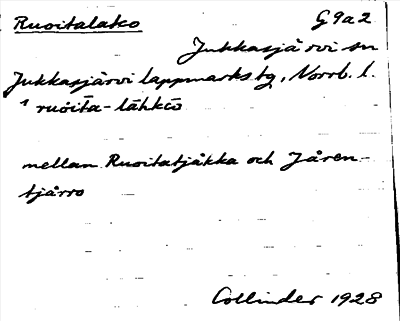 Ruoitalako G9a2
Jukkasjärvi sn
Jukkasjärvi lappmarks tg, Norrb. l.
ruo̯ita-lāhkō
mellan Ruoitatjåkka och Jåren-
tjårro
Collinder 1928